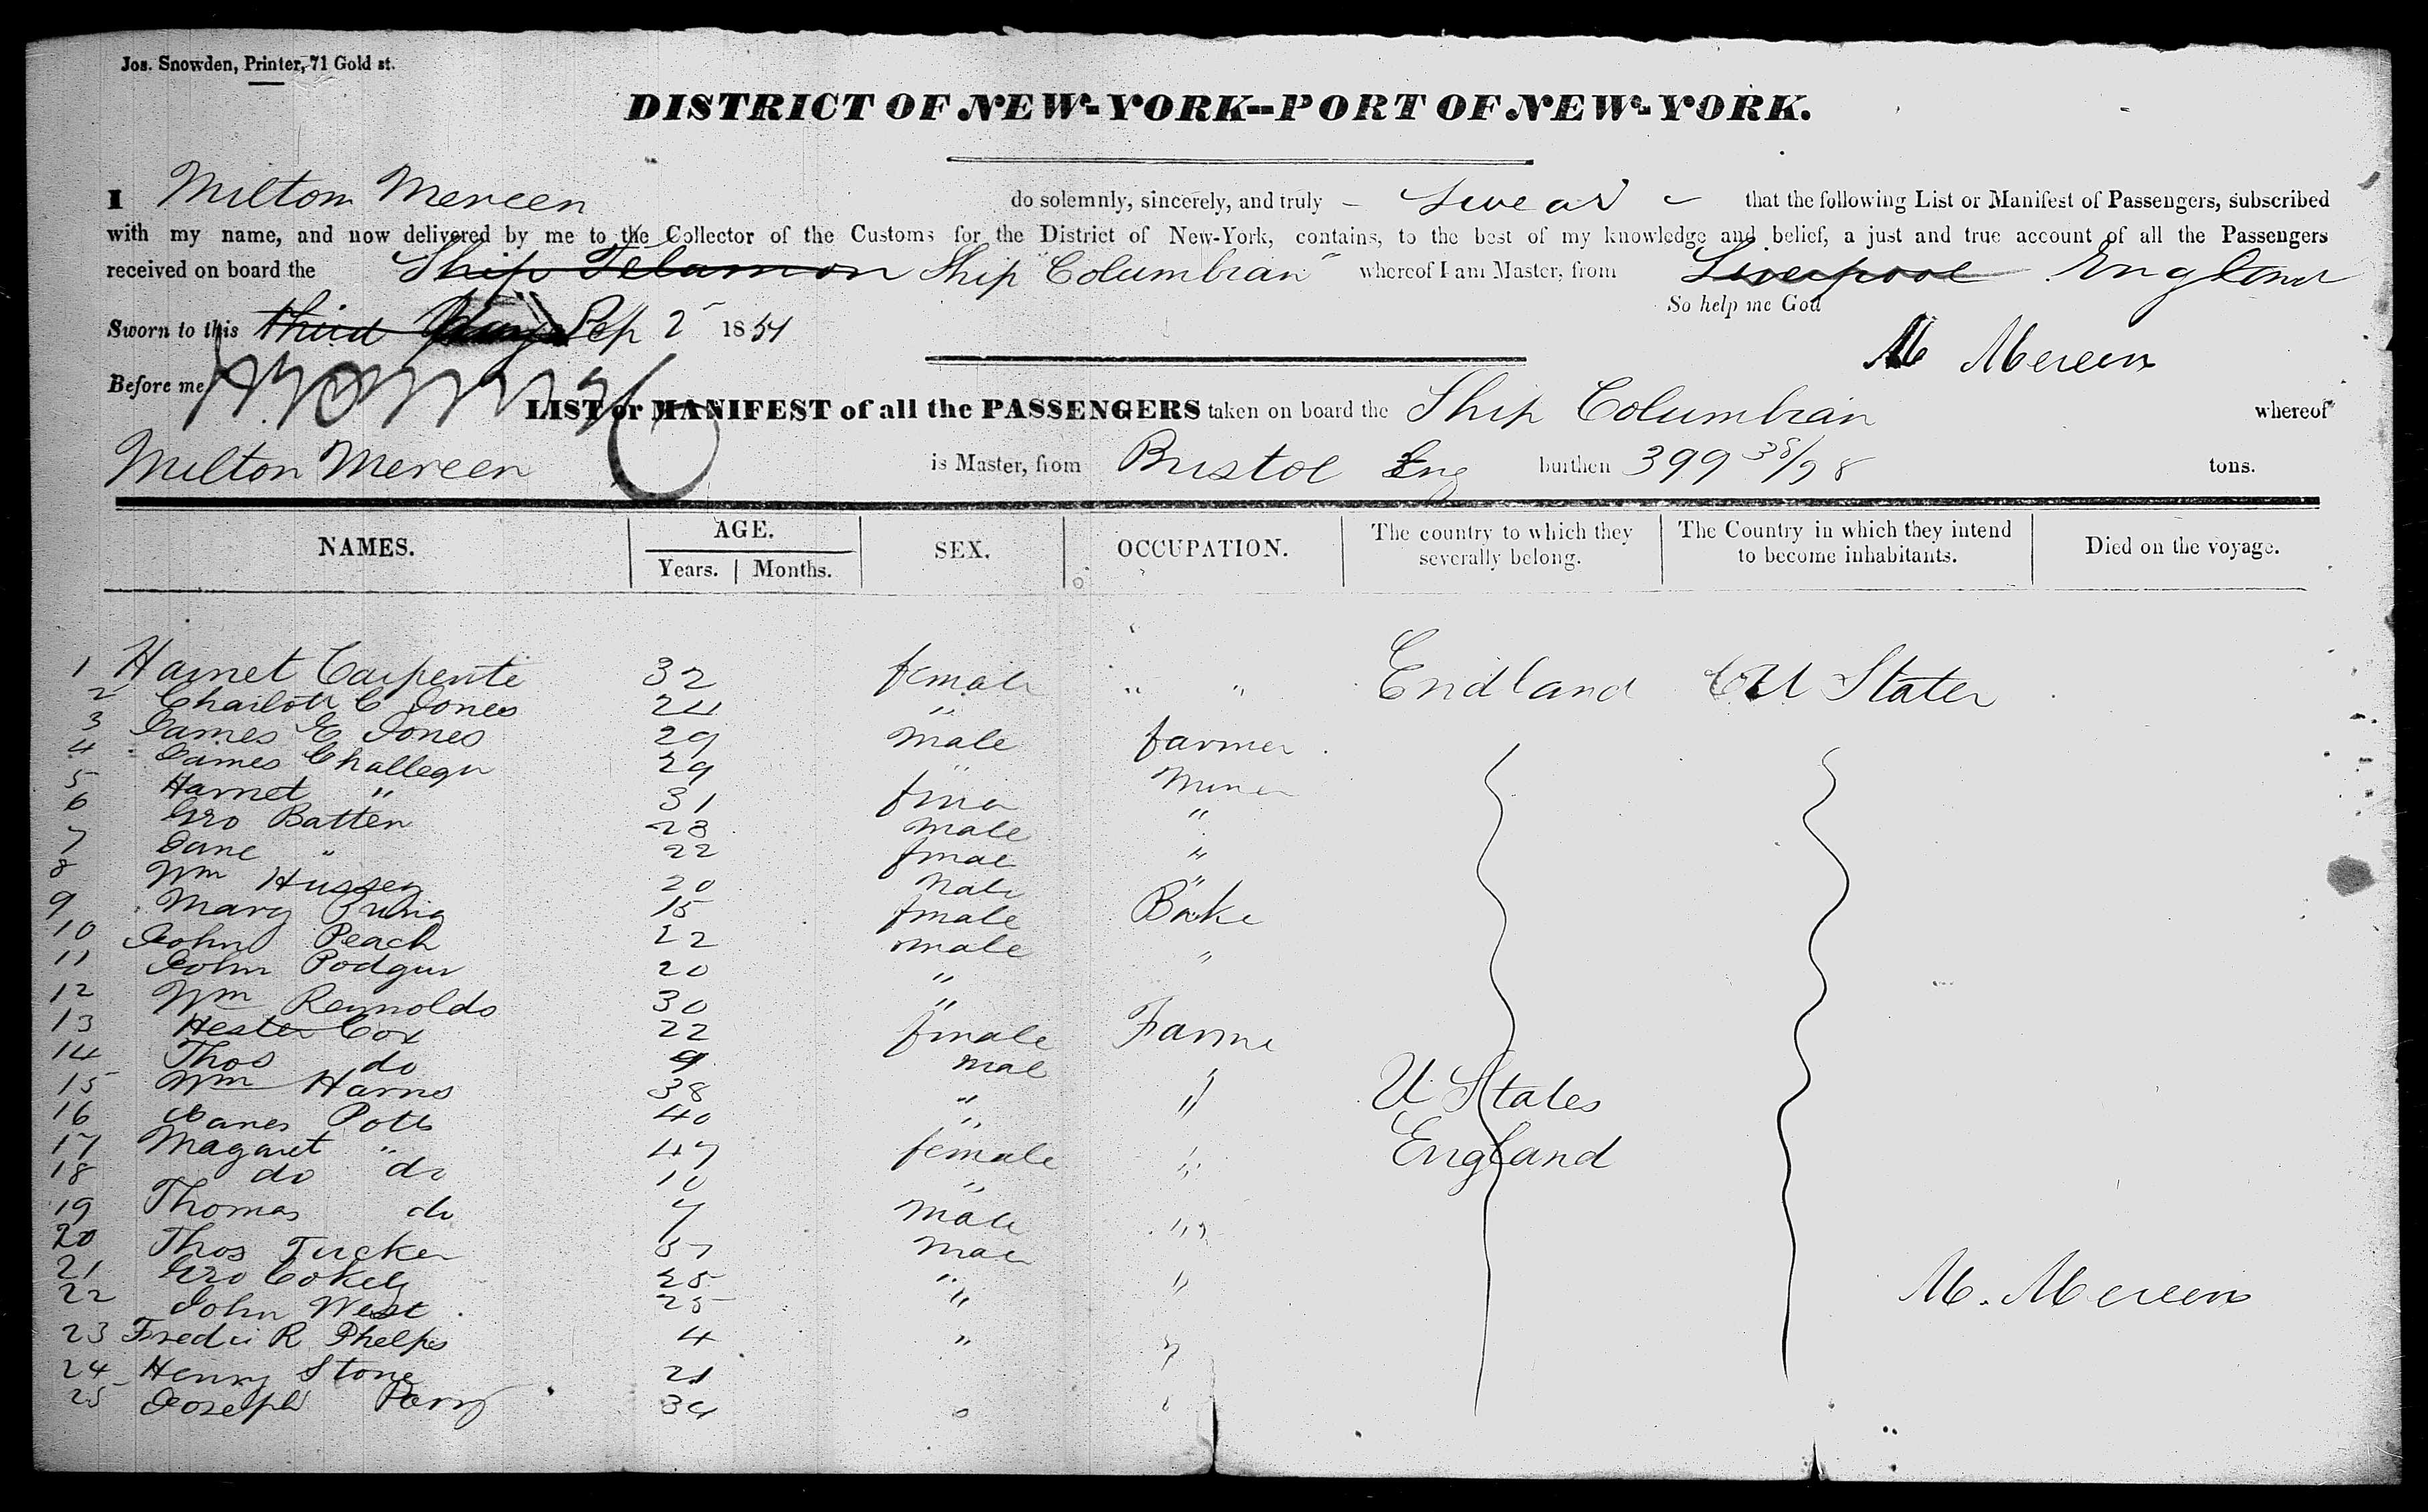 Jos. Snowden, Printer, 71 Gold st.
DISTRICT OF NEW-YORK--PORT OF NEW-YORK.
I Milton Mereen do solemnly, sincerely, and truly – swear – that the following List or Manifest of Passengers, subscribed
with my name, and now delivered by me to the Collector of the Customs for the District of New-York, contains, to the best of my knowledge and belief, a just and true account of all the Passengers
received on board the Ship Telamon Ship Columbian" whereof I am Master, from Liverpool England
So help me God
Sworn to this third Sep 2 1851
M Mereen
Before me
LIST or MANIFEST of all the PASSENGERS taken on board the Ship Columbian whereof
Milton Mereen is Master, from Bristol Eng burthen 399 38/98 tons.
NAMES. AGE. Years. Months. SEX. OCCUPATION. The country to which they severally belong. The Country in which they intend to become inhabitants. Died on the voyage.
1 Harriet Carpente 32 female " " Endland U States
2 Charlott C Jones 24 "
3 James E Jones 29 male farmer
4 James Challegu 29 " Miner
5 Harriet " 31
6 Geo Batten 23 male "
7 Jane " 22 fmae "
8 Wm Hussey 20 Male "
9 Mary 15 fmale Bake
10 John Peach 22 male "
11 John Podgur 20 "
12 Wm Reynolds 30 "
13 Hester Cox 22 fmale Farme
14 Thos do 9 mal
15 Wm Harris 38 " " U States
16 James Potts 40 " "
17 Magaret " 47 female " England
18 do do 10 "
19 Thomas do 7 Male "
20 Thos Tucker 57 Mae
21 Geo Cokely 25 " "
22 John West 25 "
M. Mereen
23 Fredri R Phelps 4 " "
24 Henry Stone 21
25 Joseph Perry 34 " "